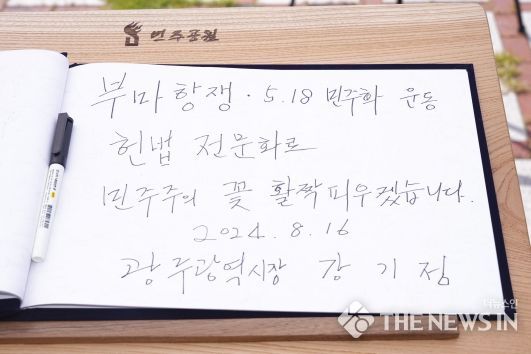 민주공원
부마항쟁 · 5.18 민주화 운동
헌법 전문화로
민주주의 꽃 활짝 피우겠습니다.
2024. 8. 16
광주광역시장 강기정
더뉴스인
THE NEWS IN